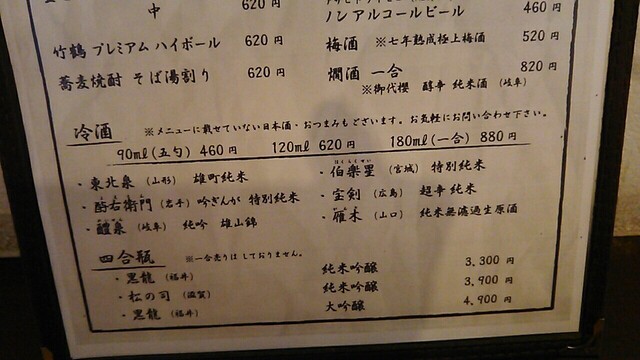 中 620 円
ノンアルコールビール 460 円
竹鶴 プレミアム ハイボール 620 円
梅酒 ※七年熟成極上梅酒 520 円
蕎麦焼酎 そば湯割り 620 円
燗酒 一合 820 円
※御代櫻 醇辛 純米酒 (岐阜)
冷酒 ※メニューに載せていない日本酒・おつまみもございます。お気軽にお問い合わせ下さい。
90ml(五勺) 460 円 120ml 620 円 180ml(一合) 880 円
・東北泉 (山形) 雄町純米
・酉与右衛門 (岩手) 吟ぎんが 特別純米
・醴泉 (岐阜) 純吟 雄山錦
・伯楽星 (宮城) 特別純米
・宝剣 (広島) 超辛 純米
・雁木 (山口) 純米無濾過生原酒
四合瓶 ※一合売りはしておりません。
・黒龍 (福井) 純米吟醸 3,300 円
・松の司 (滋賀) 純米吟醸 3,900 円
・黒龍 (福井) 大吟醸 4,900 円